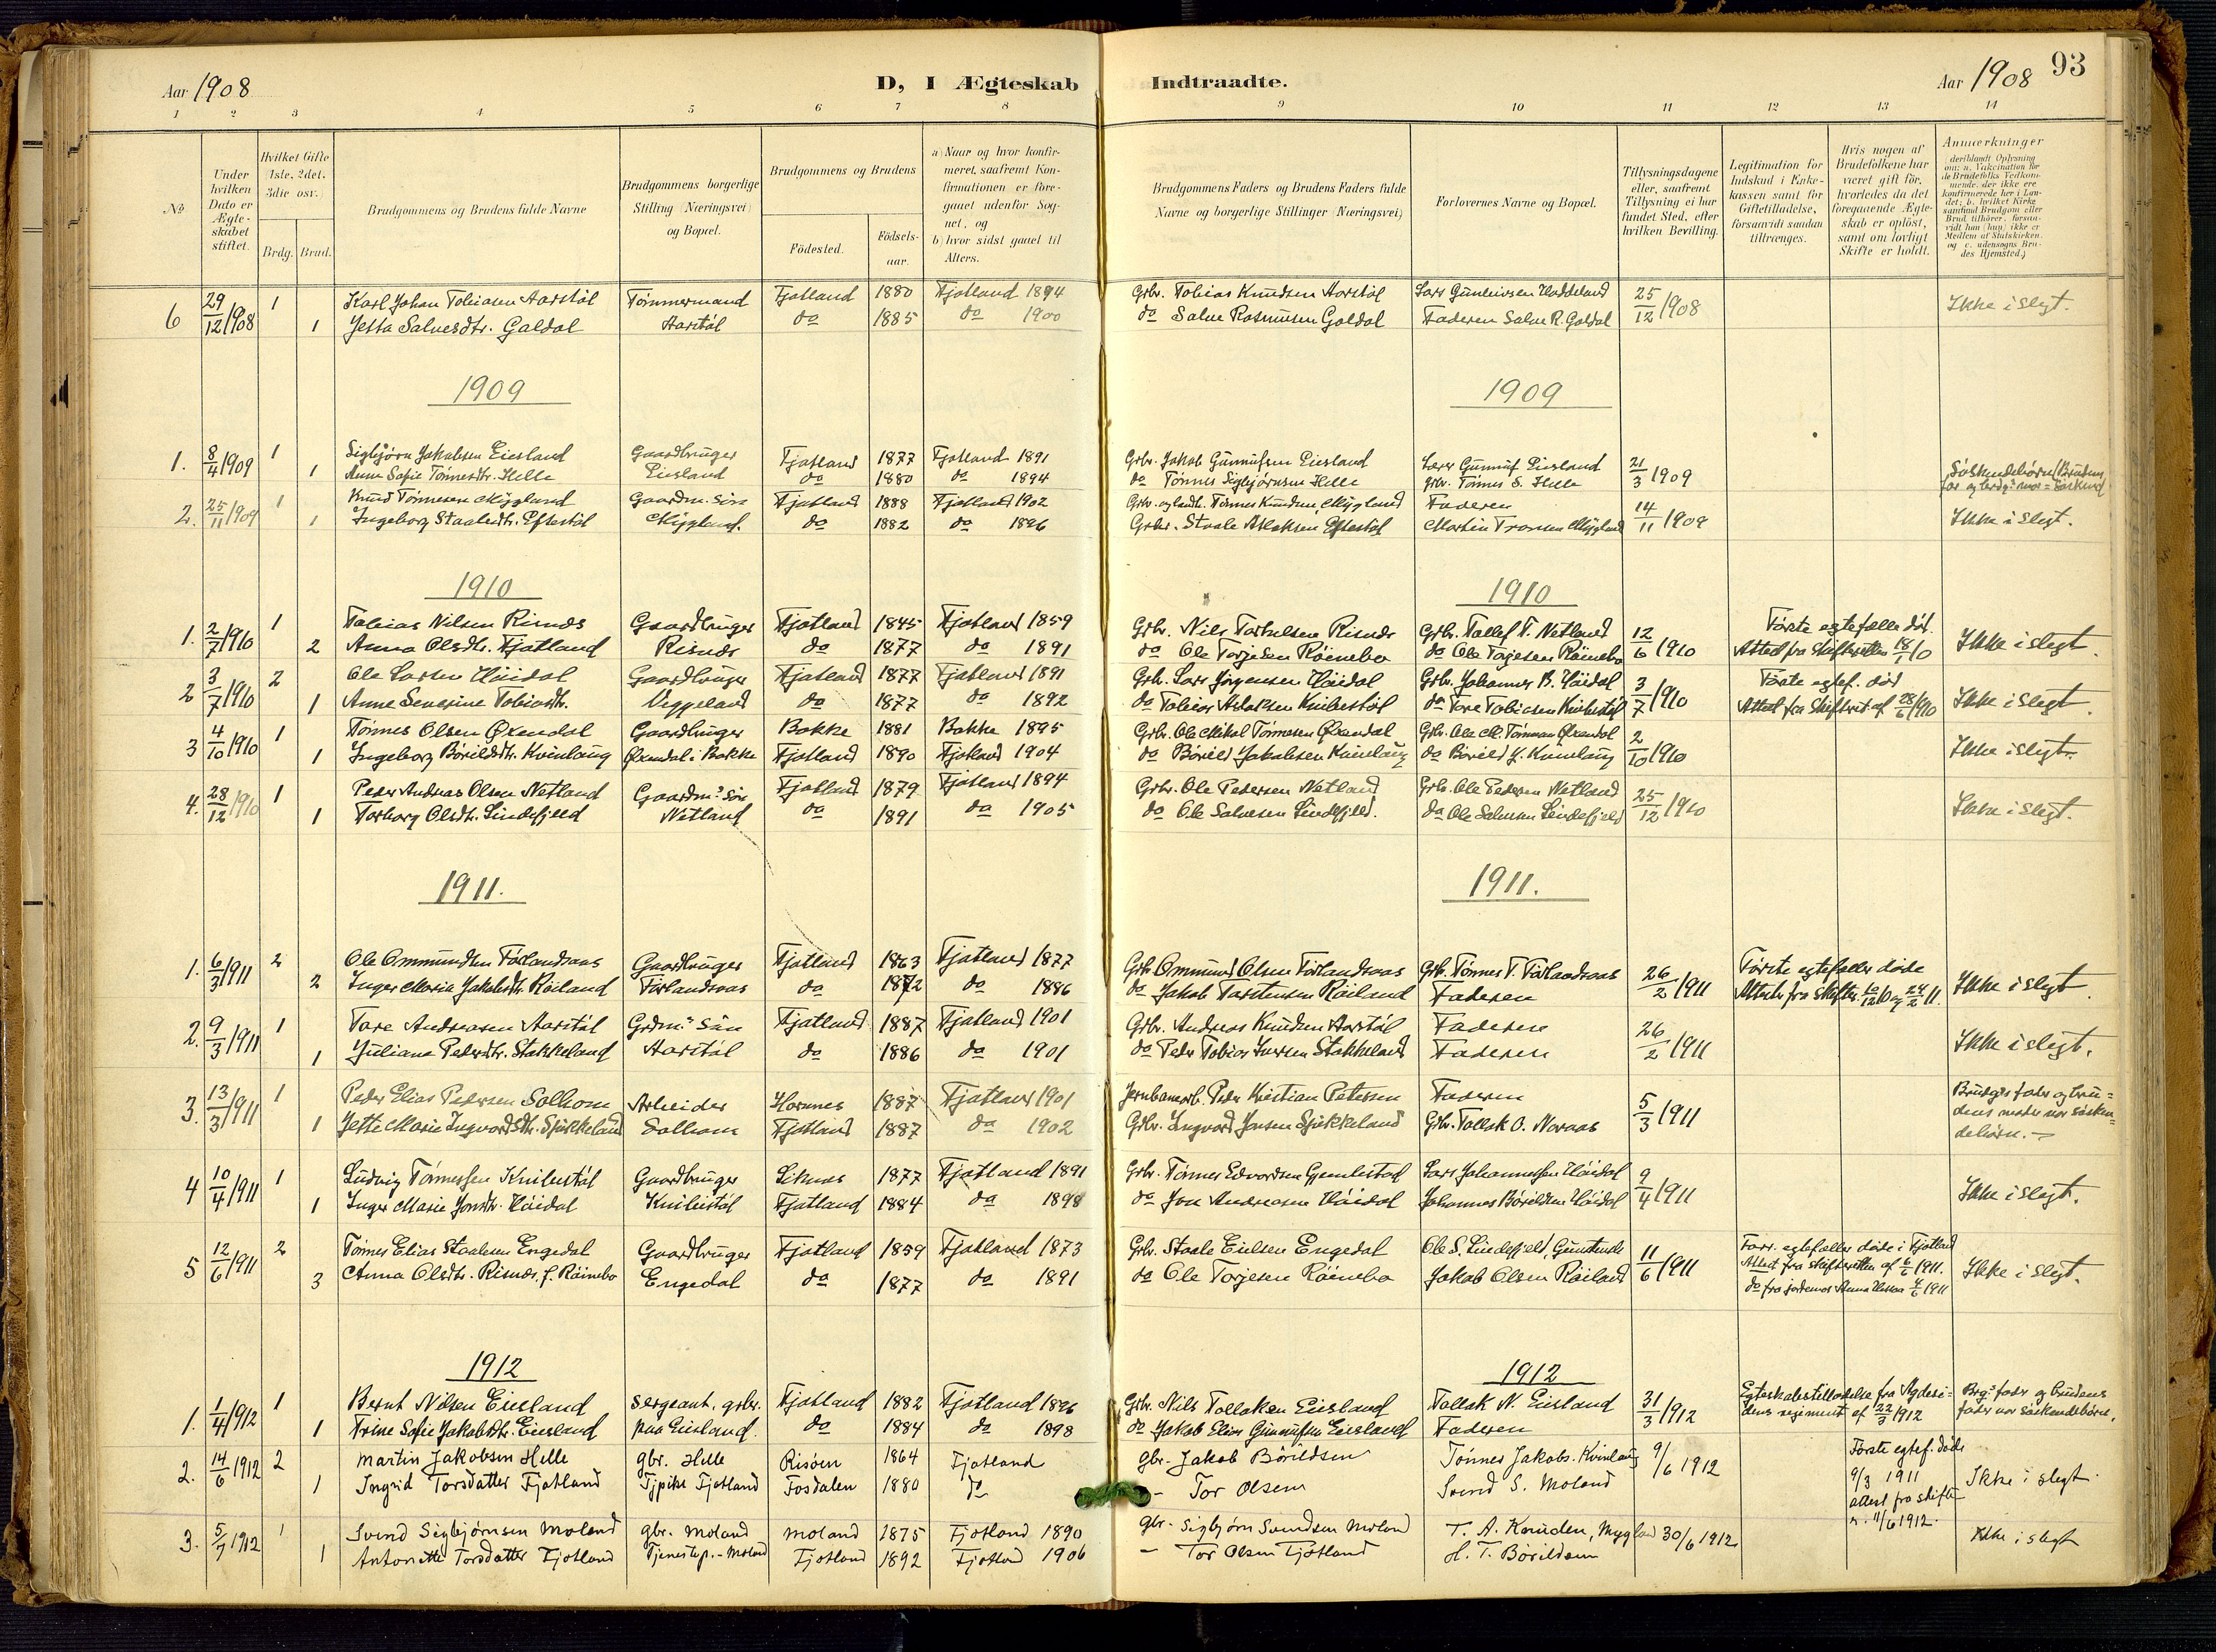 Aar 1908
D, I Ægteskab
Indtraadte.
Aar 1908
93
1 2 3 4 5 6 7 8 9 10 11 12 13 14
No
Under hvilken Dato er Ægteskabet stiftet.
Hvilket Gifte (1ste, 2det, 3die osv.
Brdg. Brud.
Brudgommens og Brudens fulde Navne
Brudgommens borgerlige Stilling (Næringsvei) og Bopæl.
Brudgommens og Brudens
Födested.
Födsels-aar.
a) Naar og hvor konfirmeret, saafremt Konfirmationen er foregaaet udenfor Sognet, og
b) hvor sidst gaaet til Alters.
Brudgommens Faders og Brudens Faders fulde Navne og borgerlige Stillinger (Næringsvei)
Forlovernes Navne og Bopæl.
Tillysningsdagene eller, saafremt Tillysning ei har fundet Sted, efter hvilken Bevilling.
Legitimation for Indskud i Enkekassen samt for Giftetilladelse, forsaavidt saadan tiltrænges.
Hvis nogen af Brudefolkene har været gift för, hvorledes da det foregaaende Ægteskab er oplöst, samt om lovligt Skifte er holdt.
Anmærkninger
6 29/12 1908 1 Karl Johan Tobiasen Aarstöl Tömmermand Fjotland 1880 Fjotland 1894 Grbr. Tobias Knudsen Aarstöl Lars Haddeland 25/12 1908 Ikke i slegt.
1 Jetta Salvesdtr. Galdal Aarstöl do 1885 do 1900 do Salve Rasmusen Galdal Faderen Salve R. Galdal
1909
1909
1. 8/4 1909 1 Sigbjörn Jakobsen Eiesland Gaardbruger Fjotland 1877 Fjotland 1891 Grbr. Jakob Gunnufsen Eiesland Lars Gunnuf Eiesland 21/3 1909 Söskendebörn (Brudens
1 Anne Sofie Tönnesdtr. Helle Eiesland do 1880 do 1894 do Tönnes Sigbjörnsen Helle Grbr. Tönnes S. Helle far og brdg.s mor = söskend
2. 25/11 1909 1 Knud Tönnesen Mygland Gaardm. sön Fjotland 1888 Fjotland 1902 Grbr. og landh. Tönnes Knudsen, Mygland Faderen 14/11 1909 Ikke i slegt.
1 Ingeborg Staalesdtr. Eftestöl Mygland. do 1882 do 1896 Grbr. Staale Aslaksen Eftestöl Martin Tronsen Mygland
1910
1910
1. 2/7 1910 1 Tobias Nilsen Risnes Gaardbruger Fjotland 1845 Fjotland 1859 Grbr. Nils Risnes Grbr. Tollef T. Netland 12/6 1910 Förste egtefælle död. Ikke i slegt.
2 Anna Olsdtr. Fjotland Risnes do 1877 do 1891 do Ole Torjesen Röinebo do Ole Torjesen Röinebo Attest fra Skifteretten 18/1 10
2 3/7 1910 2 Ole Larsen Höidal Gaardbruger Fjotland 1877 Fjotland 1891 Grbr. Lars Jörgensen Höidal Grbr. Johannes B. Höidal 3/7 1910 Förste egtef. död Ikke i slegt.
1 Anne Severine Tobiasdtr. Veggeland do 1877 do 1892 do Tobias Aslaksen Knibestöl do Tore Tobiasen Knibestöl Attest fra Skifteret af 28/6 1910
3 4/10 1910 1 Tönnes Olsen Öxendal Gaardbruger Bakke 1881 Bakke 1895 Grbr. Ole Mikal Tönnesen Öxendal Grbr. Ole M. Tönnesen Öxendal 2/10 1910 Ikke i slegt.
1 Ingeborg Börildsdtr. Kvinlaug Öxendal i Bakke Fjotland 1890 Fjotland 1904 do Böreld Jakobsen Kvinlaug do Böreld J. Kvinlaug
4. 28/12 1910 1 Peder Andreas Olsen Netland Gaardm.s sön Fjotland 1879 Fjotland 1894 Grbr. Ole Pedersen Netland Grbr. Ole Pedersen Netland 25/12 1910 Ikke i slegt.
1 Torborg Olsdtr. Lindefjeld Netland do 1891 do 1905 do Ole Salvesen Lindefjeld. do Ole Salvesen Lindefjeld
1911.
1911.
1. 6/3 1911 2 Ole Ommundsen Förlandsaas Gaardbruger Fjotland 1863 Fjotland 1877 Grb. Ommund Olsen Förlandsaas Grb. Tönnes T. Förlandsaas 26/2 1911 Förste egtefæller döde Ikke i slegt.
2 Inger Maria Jakobsdtr. Röiland Förlandsaas do 1872 do 1886 do Jakob Torstensen Röiland Faderen Attester fra skifter. 10/12 10 og 24/2 11.
2. 9/3 1911 1 Tore Andreasen Aarstöl Grdm.s sön Fjotland 1887 Fjotland 1901 Grbr. Andreas Knudsen Aarstöl Faderen 26/2 1911 Ikke i slegt.
1 Juliane Pedersdtr. Stakkeland Aarstöl do 1886 do 1901 do Peder Tobias Iversen Stakkeland Faderen
3. 13/3 1911 1 Peder Elias Pedersen Solhom Arbeider Hornnes 1887 Fjotland 1901 Jernbanearb. Peder Kristian Petersen Faderen 5/3 1911 Brudgs fader og bru-
1 Jette Marie Ingvardsdtr. Sjökkeland Solhom Fjotland 1887 do 1902 Grbr. Ingvard Jensen Sjökkeland Grbr. Tollak O. Noraas dens moder var sösken-
debörn.
4 10/4 1911 1 Ludvig Tönnessen Knibestöl Gaardbruger Liknes 1877 Fjotland 1891 Grbr. Tönnes Edvardsen Gjemlestad Lars Johannessen Höidal 9/4 1911 Ikke i slegt.
1 Inger Marie Jonsdtr. Höidal Knibestöl Fjotland 1884 do 1898 do Jon Andreasen Höidal Johannes Börildsen Höidal
5 12/6 1911 2 Tönnes Elias Staalesen Engedal Gaardbruger Fjotland 1859 Fjotland 1873 Grbr. Staale Eielsen Engedal Ole S. Lindefjeld, 11/6 1911 Forr. egtefæller döde i Fjotland
3 Anna Olsdtr. Risnes, f. Röinebo Engedal do 1877 do 1891 do Ole Torjesen Röinebo Jakob Olsen Röiland Attest fra skifteretten af 6/6 1911. Ikke i slegt.
do fra jordemor Anna 4/6 1911
1912
1912
1. 1/4 1912 1 Bernt Nilsen Eiesland sergeant, grbr. Fjotland 1882 Fjotland 1896 Grbr. Nils Tollaksen Eiesland Tollak N. Eiesland 31/3 1912 Egteskabstilladelse fra Agdesi- Brg.s fader og brudens
1 Trine Sofie Jakobsdtr. Eiesland paa Eiesland. do 1884 do 1898 do Jakob Elias Gunnufsen Eiesland Faderen dens regiment af 22/3 1912 fader var söskendebörn.
2. 14/6 1912 2 Martin Jakobsen Helle gbr. Helle Risöen 1864 Fjotland gbr. Jakob Börildsen Tönnes Jakobs. Kvinlaug 9/6 1912 Förste egtef. döde
1 Ingrid Torsdatter Fjotland Tjpike Fjotland Fosdalen 1880 do – Tor Olsen Svend S. Moland 9/3 1911 Ikke i slegt.
attest fra skifte
11/6 1912.
3. 5/7 1912 1 Svend Sigbjörnsen Moland gbr. Moland Moland 1875 Fjotland 1890 gbr. Sigbjörn Svendsen Moland T. A. Knuden, Mygland 30/6 1912 Ikke i slegt
1 Antonette Torsdatter Fjotland Tjenestep. – Moland Fjotland 1892 Fjotland 1906 – Tor Olsen Fjotland H. T. Börildsen